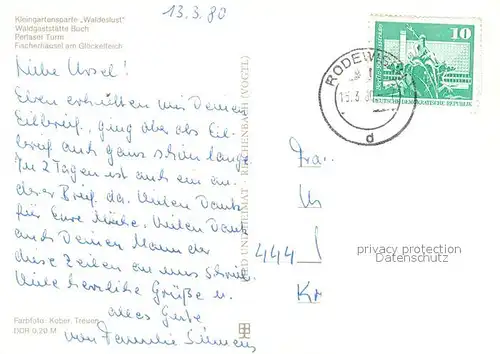 13.3.80
Kleingartensparte „Waldeslust"
Waldgaststätte Buch
Perlaser Turm
Fischerhäusel am Glöckelteich
Liebe Ursel!
Eben erhielten wir Deinen
Eilbrief, ging aber als Eil-
brief auch ganz schön lange.
In 2 Tagen ist auch ein an-
derer Brief da. Vielen Dank
für Eure Mühe. Vielen Dank
auch Deinem Mann der
diese Zeilen an uns schrieb.
Viele herzliche Grüße u.
alles Gute
von Familie
Farbfoto: Kober, Treuen
DDR 0,20 M
BILD UND HEIMAT · REICHENBACH (VOGTL)
10
DEUTSCHE DEMOKRATISCHE REPUBLIK
RODEWISCH
13.3.80
d
Frau
U
444
Kr
privacy protection
Datenschutz